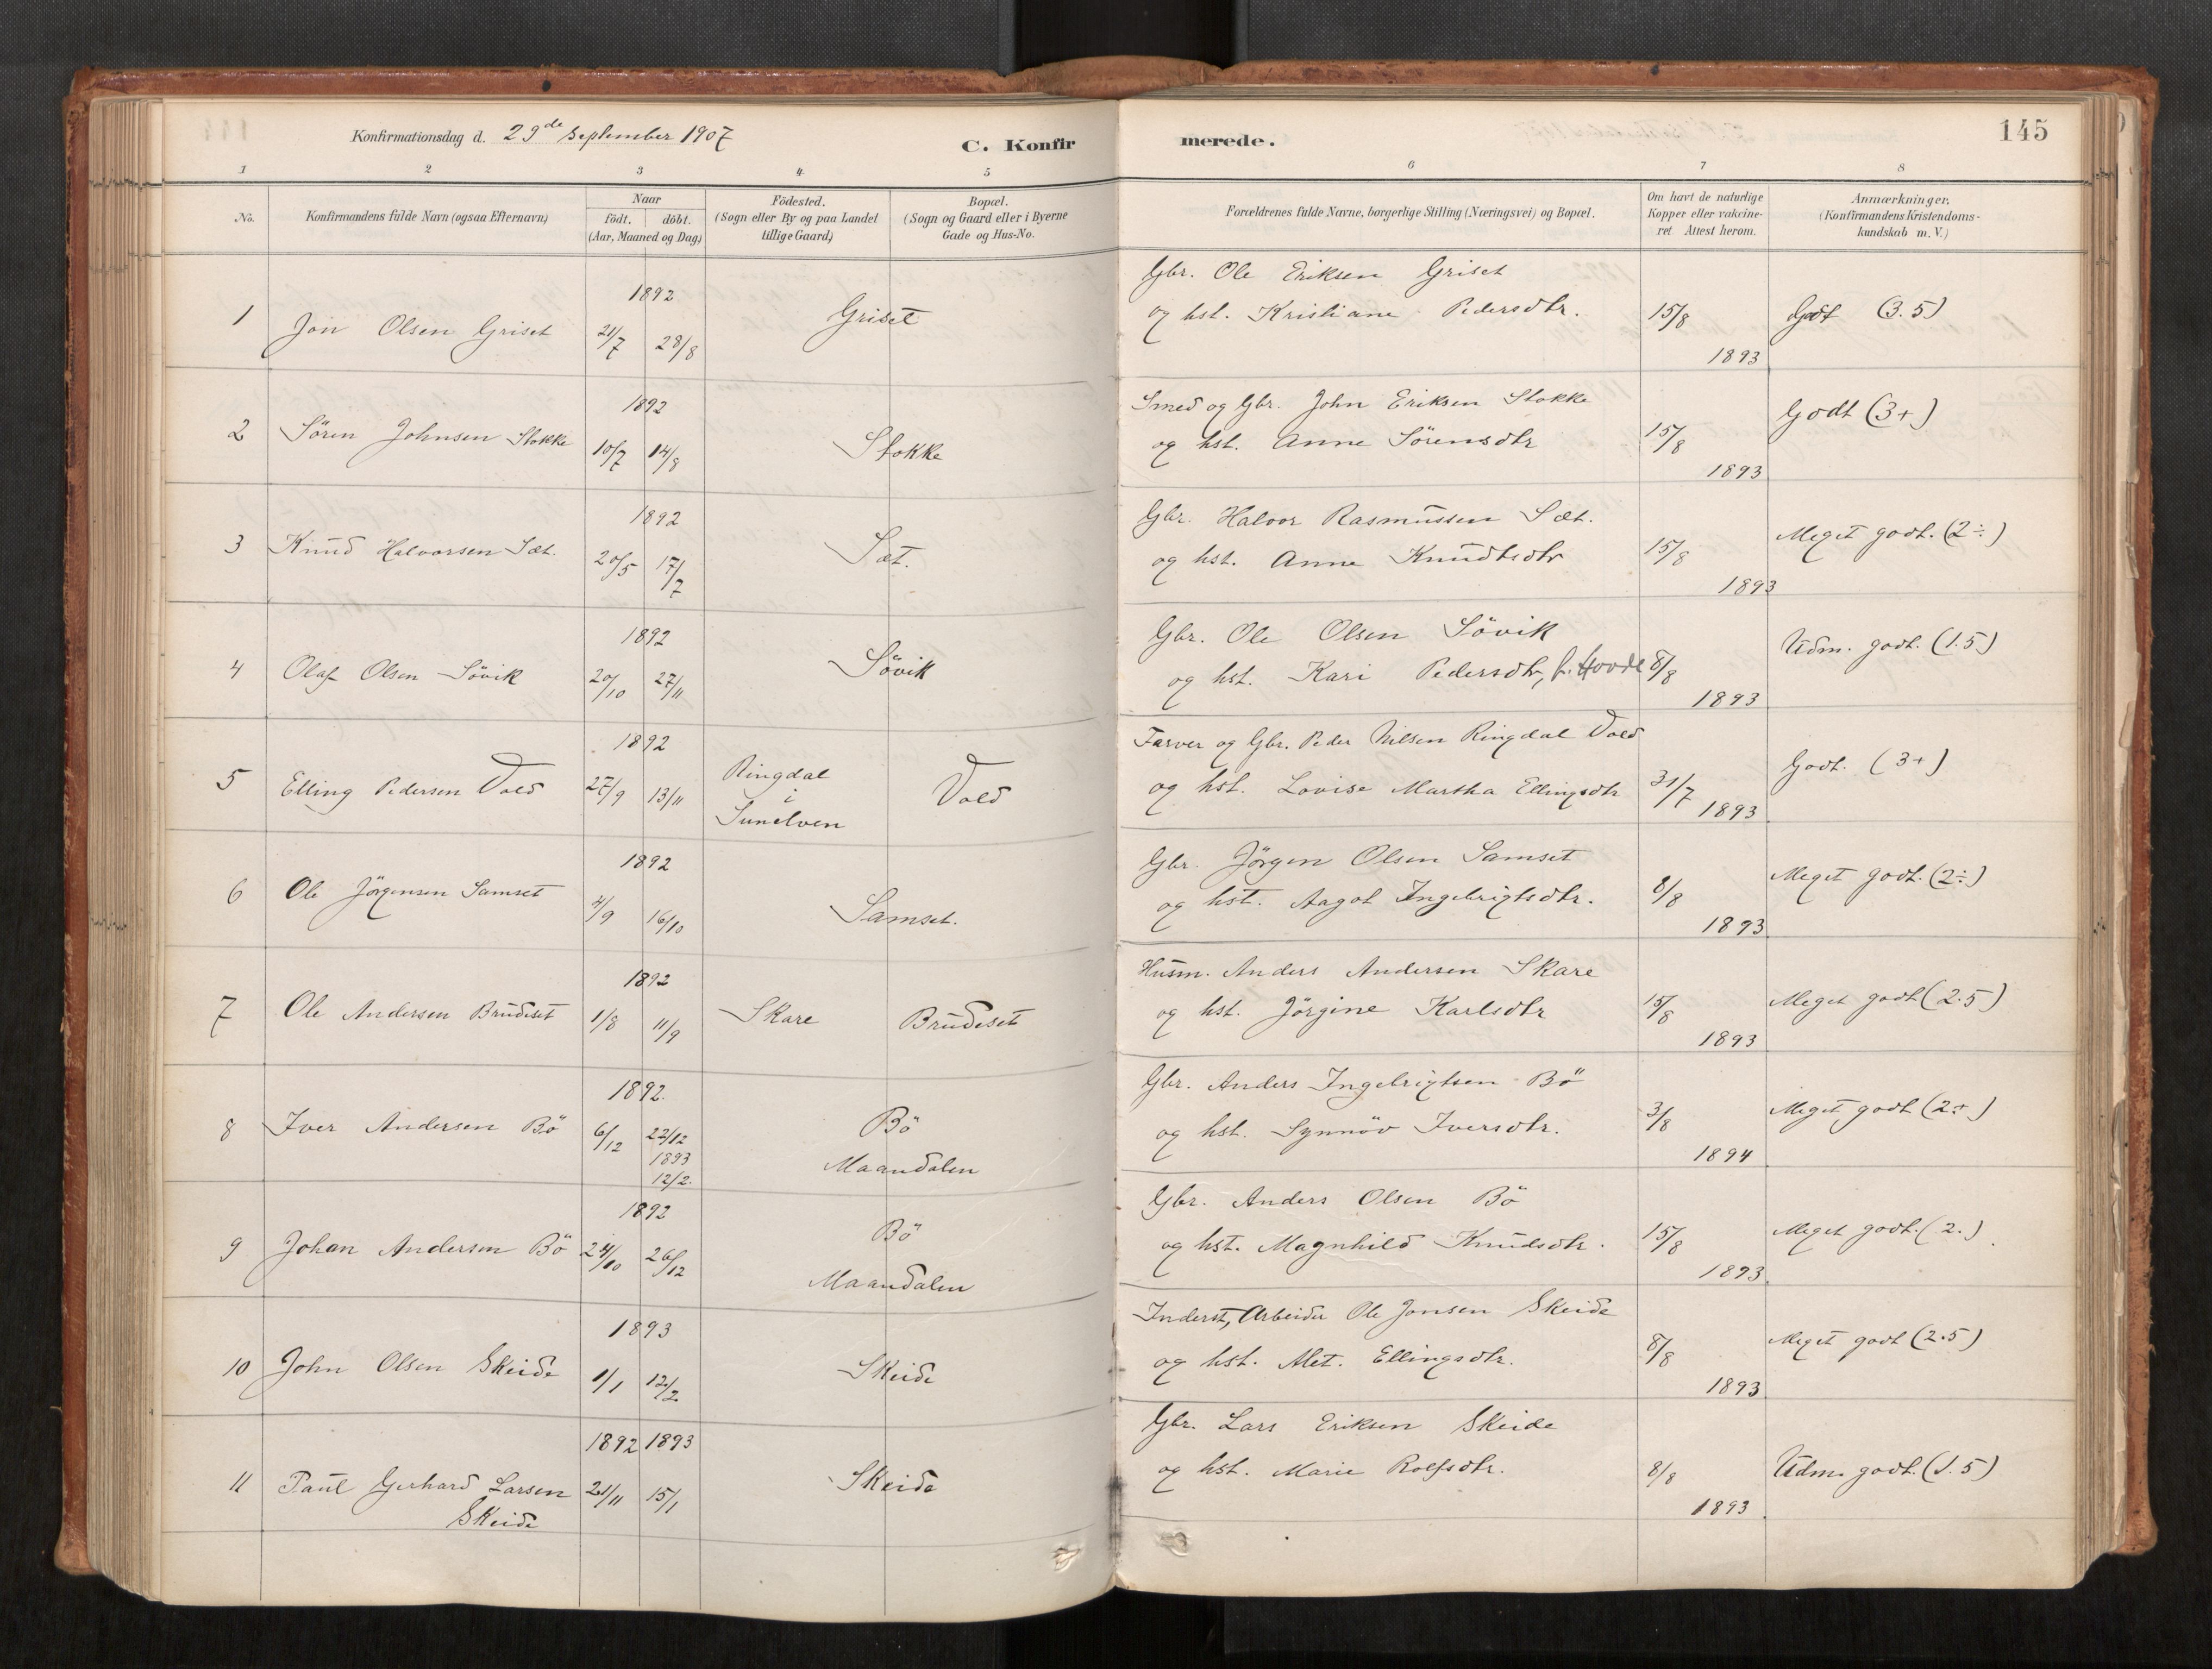 Konfirmationsdag d. 29de September 1907
C. Konfirmerede.
145
1 2 3 4 5 6 7 8
No.
Konfirmandens fulde Navn (ogsaa Efternavn)
Naar
födt. döbt.
(Aar, Maaned og Dag)
Födested.
(Sogn eller By og paa Landet
tillige Gaard)
Bopæl.
(Sogn og Gaard eller i Byerne
Gade og Hus-No.
Forældrenes fulde Navne, borgerlige Stilling (Næringsvei) og Bopæl.
Om havt de naturlige
Kopper eller vakcine-
ret. Attest herom.
Anmærkninger.
(Konfirmandens Kristendoms-
kundskab m. V.)
1 Jon Olsen Griset
1892
21/7 28/8
Griset
Gbr. Ole Eriksen Griset
og hst. Kristiane Pedersdtr.
15/8
1893
Godt (3.5)
2 Sören Johnsen Stokke
1892
10/7 14/8
Stokke
Smed og Gbr. John Eriksen Stokke
og hst. Anne Sörensdtr
15/8
1893
Godt (3+)
3 Knud Halvorsen Sæt.
1892
20/5 17/7
Sæt.
Gbr. Halvor Rasmussen Sæt.
og hst. Anne Knudtsdtr
15/8
1893
Meget godt. (2÷)
4 Olaf Olsen Sövik
1892
20/10 27/11
Sövik
Gbr. Ole Olsen Sövik
og hst. Kari Pedersdtr, f. Hovde
8/8
1893
Udm. godt. (1.5)
5 Elling Pedersen Vold
1892
27/9 13/11
Ringdal
i
Sunelven
Vold
Farver og Gbr. Peder Nilsen Ringdal Vold
og hst. Lovise Martha Ellingsdtr
31/7
1893
Godt. (3+)
6 Ole Jörgensen Samset
1892
4/9 16/10
Samset.
Gbr. Jörgen Olsen Samset
og hst. Aagot Ingebrigtsdtr.
8/8
1893
Meget godt. (2÷)
7 Ole Andersen Brudeset
1892
1/8 11/9
Skare
Brudeset
Husm. Anders Andersen Skare
og hst. Jörgine Karlsdtr
15/8
1893
Meget godt (2.5)
8 Iver Andersen Bö
1892.
6/12 22/12
1893
12/2.
Bö
Maandalen
Gbr. Anders Ingebrigtsen Bö
og hst. Synnöv Iversdtr.
3/8
1894
Meget godt (2+)
9 Johan Andersen Bö
1892
24/10 26/12
Bö
Maandalen
Gbr. Anders Olsen Bö
og hst. Magnhild Knudsdtr.
15/8
1893
Meget godt. (2.)
10 John Olsen Skeide
1893
1/1 12/2
Skeide
Inderst, Arbeider Ole Jonsen Skeide
og hst. Met. Ellingsdtr.
8/8
1893
Meget godt (2.5)
11 Paul Gerhard Larsen
Skeide
1892 1893
21/11 15/1
Skeide
Gbr. Lars Eriksen Skeide
og hst. Marie Rolfsdtr.
8/8
1893
Udm. godt. (1.5)